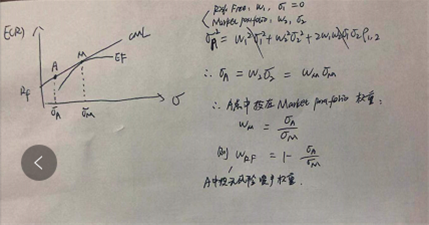 E(R)
CML
M
EF
A
Rf
σA
σM
σ
Risk Free: w₁, σ₁=0
Market portfolio: w₂, σ₂
σA² = w₁²σ₁² + w₂²σ₂² + 2w₁w₂σ₁σ₂ρ₁,₂
∴ σA = w₂σ₂ = wMσM
∴ A点中投在Market portfolio 权重:
wM = σA/σM
则 WRF = 1 - σA/σM
A中投无风险资产权重.